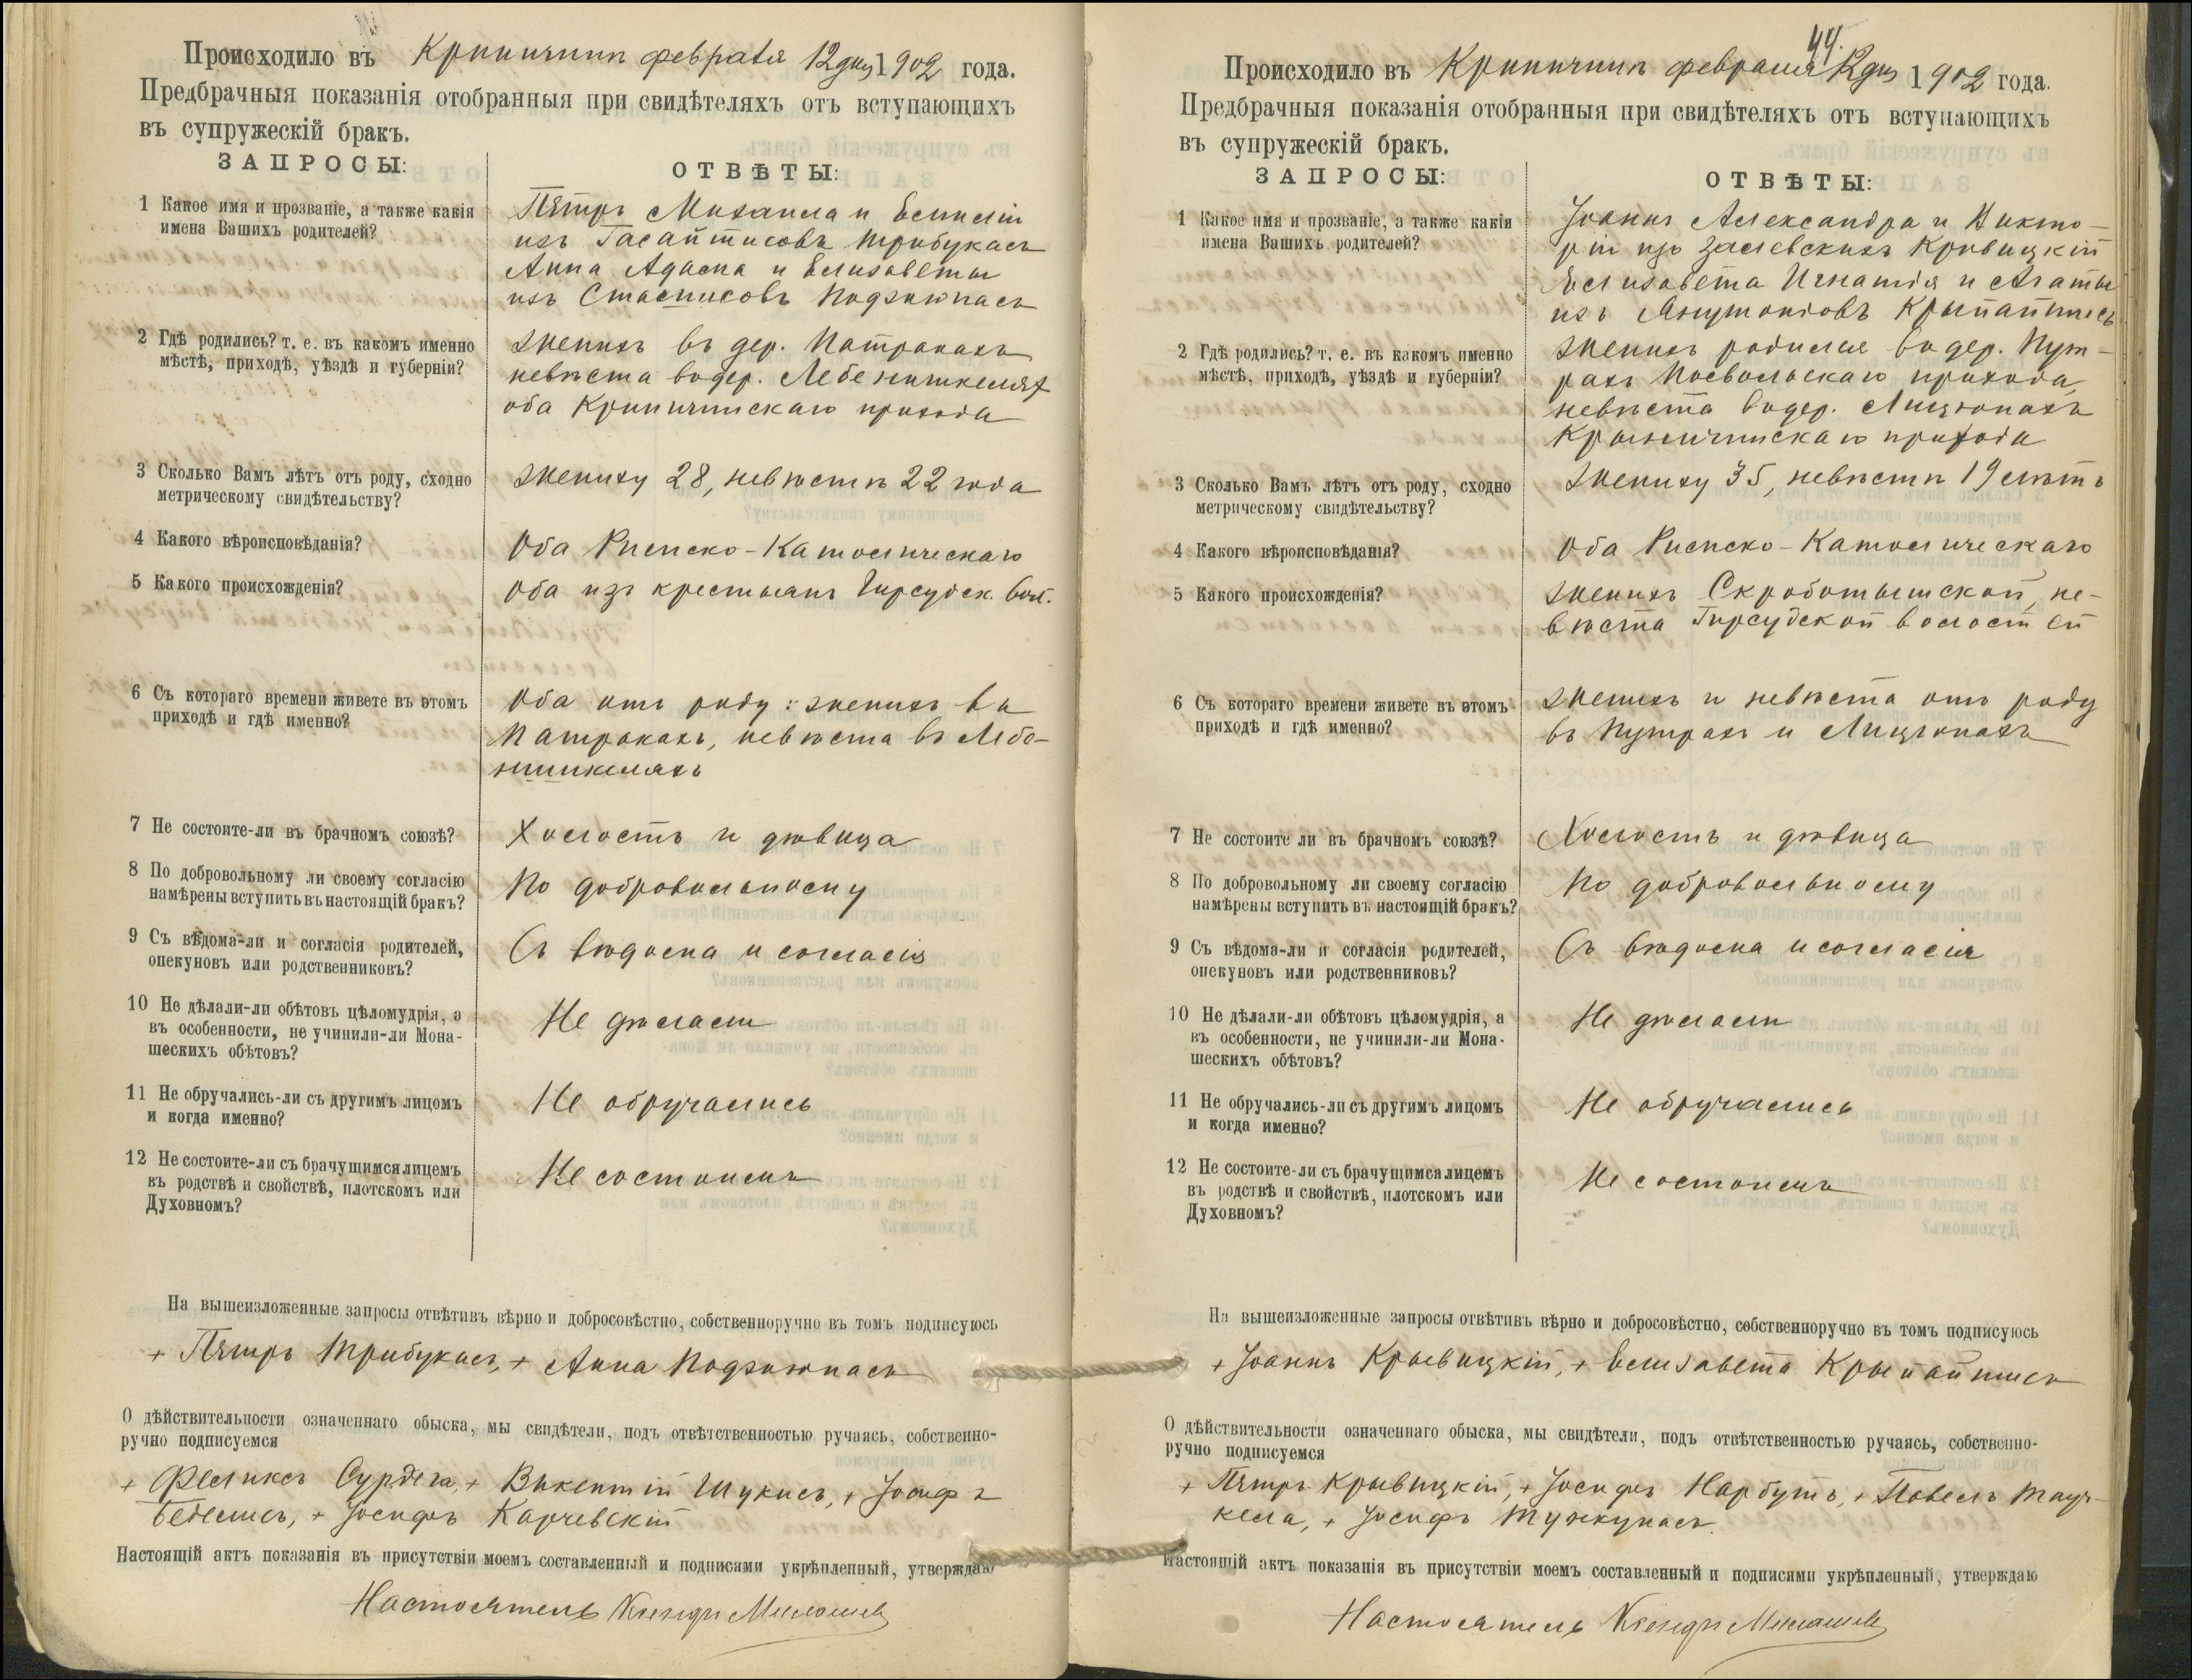 Происходило въ Криничинѣ февраля 12 дня 1902 года.
Предбрачныя показанія отобранныя при свидѣтеляхъ отъ вступающихъ
въ супружескій бракъ.
ЗАПРОСЫ:
ОТВѢТЫ:
1 Какое имя и прозваніе, а также какія
имена Вашихъ родителей?
Пётръ Михаила и Емиліи
изъ Гасайтисовъ Трибукасъ
Анна Адама и Елизаветы
изъ Стасписовъ Подзюкасъ
2 Гдѣ родились? т. е. въ какомъ именно
мѣстѣ, приходѣ, уѣздѣ и губерніи?
женихъ въ дер. Патракахъ
невѣста въ дер.
оба Криничинскаго прихода
3 Сколько Вамъ лѣтъ отъ роду, сходно
метрическому свидѣтельству?
жениху 28, невѣстѣ 22 года
4 Какого вѣроисповѣданія?
Оба Римско-Католическаго
5 Какого происхожденія?
Оба изъ крестьянъ Гирсудск. вол.
6 Съ котораго времени живете въ этомъ
приходѣ и гдѣ именно?
Оба отъ роду: женихъ въ
Патракахъ, невѣста въ
7 Не состоите-ли въ брачномъ союзѣ?
Холостъ и дѣвица
8 По добровольному ли своему согласію
намѣрены вступить въ настоящій бракъ?
По добровольному
9 Съ вѣдома-ли и согласія родителей,
опекуновъ или родственниковъ?
Съ вѣдома и согласія
10 Не дѣлали-ли обѣтовъ цѣломудрія, а
въ особенности, не учинили-ли Мона-
шескихъ обѣтовъ?
Не дѣлали
11 Не обручались-ли съ другимъ лицомъ
и когда именно?
Не обручались
12 Не состоите-ли съ брачущимся лицемъ
въ родствѣ и свойствѣ, плотскомъ или
Духовномъ?
Не состоимъ
На вышеизложенные запросы отвѣтивъ вѣрно и добросовѣстно, собственноручно въ томъ подписуюсь
+ Пётръ Трибукасъ, + Анна Подзюкасъ
О дѣйствительности означеннаго обыска, мы свидѣтели, подъ отвѣтственностью ручаясь, собственно-
ручно подписуемся
+ Феликсъ Сурдега, + Викентій Шукисъ, + Іосифъ
Беделисъ, + Іосифъ Карчевскій
Настоящій актъ показанія въ присутствіи моемъ составленный и подписями укрѣпленный, утверждаю
Настоятель Ксендзъ
44.
Происходило въ Криничинѣ февраля 12 дня 1902 года.
Предбрачныя показанія отобранныя при свидѣтеляхъ отъ вступающихъ
въ супружескій бракъ.
ЗАПРОСЫ:
ОТВѢТЫ:
1 Какое имя и прозваніе, а также какія
имена Вашихъ родителей?
Іоаннъ Александра и Викто-
ріи изъ Залевскихъ Кривицкій
Елизавета Игнатія и Агаты
изъ Янутоніовъ Крыпайтисъ
2 Гдѣ родились? т. е. въ какомъ именно
мѣстѣ, приходѣ, уѣздѣ и губерніи?
женихъ родился въ дер. Пут-
рахъ Посвольскаго прихода,
невѣста въ дер. Лицюнахъ
Крыничинскаго прихода
3 Сколько Вамъ лѣтъ отъ роду, сходно
метрическому свидѣтельству?
жениху 35, невѣстѣ 19 лѣтъ
4 Какого вѣроисповѣданія?
Оба Римско-Католическаго
5 Какого происхожденія?
женихъ Скроботышской, не-
вѣста Гирсудской волостей
6 Съ котораго времени живете въ этомъ
приходѣ и гдѣ именно?
женихъ и невѣста отъ роду
въ Путрахъ и Лицюнахъ
7 Не состоите ли въ брачномъ союзѣ?
Холостъ и дѣвица
8 По добровольному ли своему согласію
намѣрены вступить въ настоящій бракъ?
По добровольному
9 Съ вѣдома-ли и согласія родителей,
опекуновъ или родственниковъ?
Съ вѣдома и согласія
10 Не дѣлали-ли обѣтовъ цѣломудрія, а
въ особенности, не учинили-ли Мона-
шескихъ обѣтовъ?
Не дѣлали
11 Не обручались-ли съ другимъ лицомъ
и когда именно?
Не обручались
12 Не состоите-ли съ брачущимся лицемъ
въ родствѣ и свойствѣ, плотскомъ или
Духовномъ?
Не состоимъ
На вышеизложенные запросы отвѣтивъ вѣрно и добросовѣстно, собственноручно въ томъ подписуюсь
+ Іоаннъ Крывицкій, + Елизавета Крыпайтисъ
О дѣйствительности означеннаго обыска, мы свидѣтели, подъ отвѣтственностью ручаясь, собственно-
ручно подписуемся
+ Пётръ Крывицкій, + Іосифъ Нарбутъ, + Павелъ Тауч-
кела, + Іосифъ Тункунасъ.
Настоящій актъ показанія въ присутствіи моемъ составленный и подписями укрѣпленный, утверждаю
Настоятель Ксендзъ